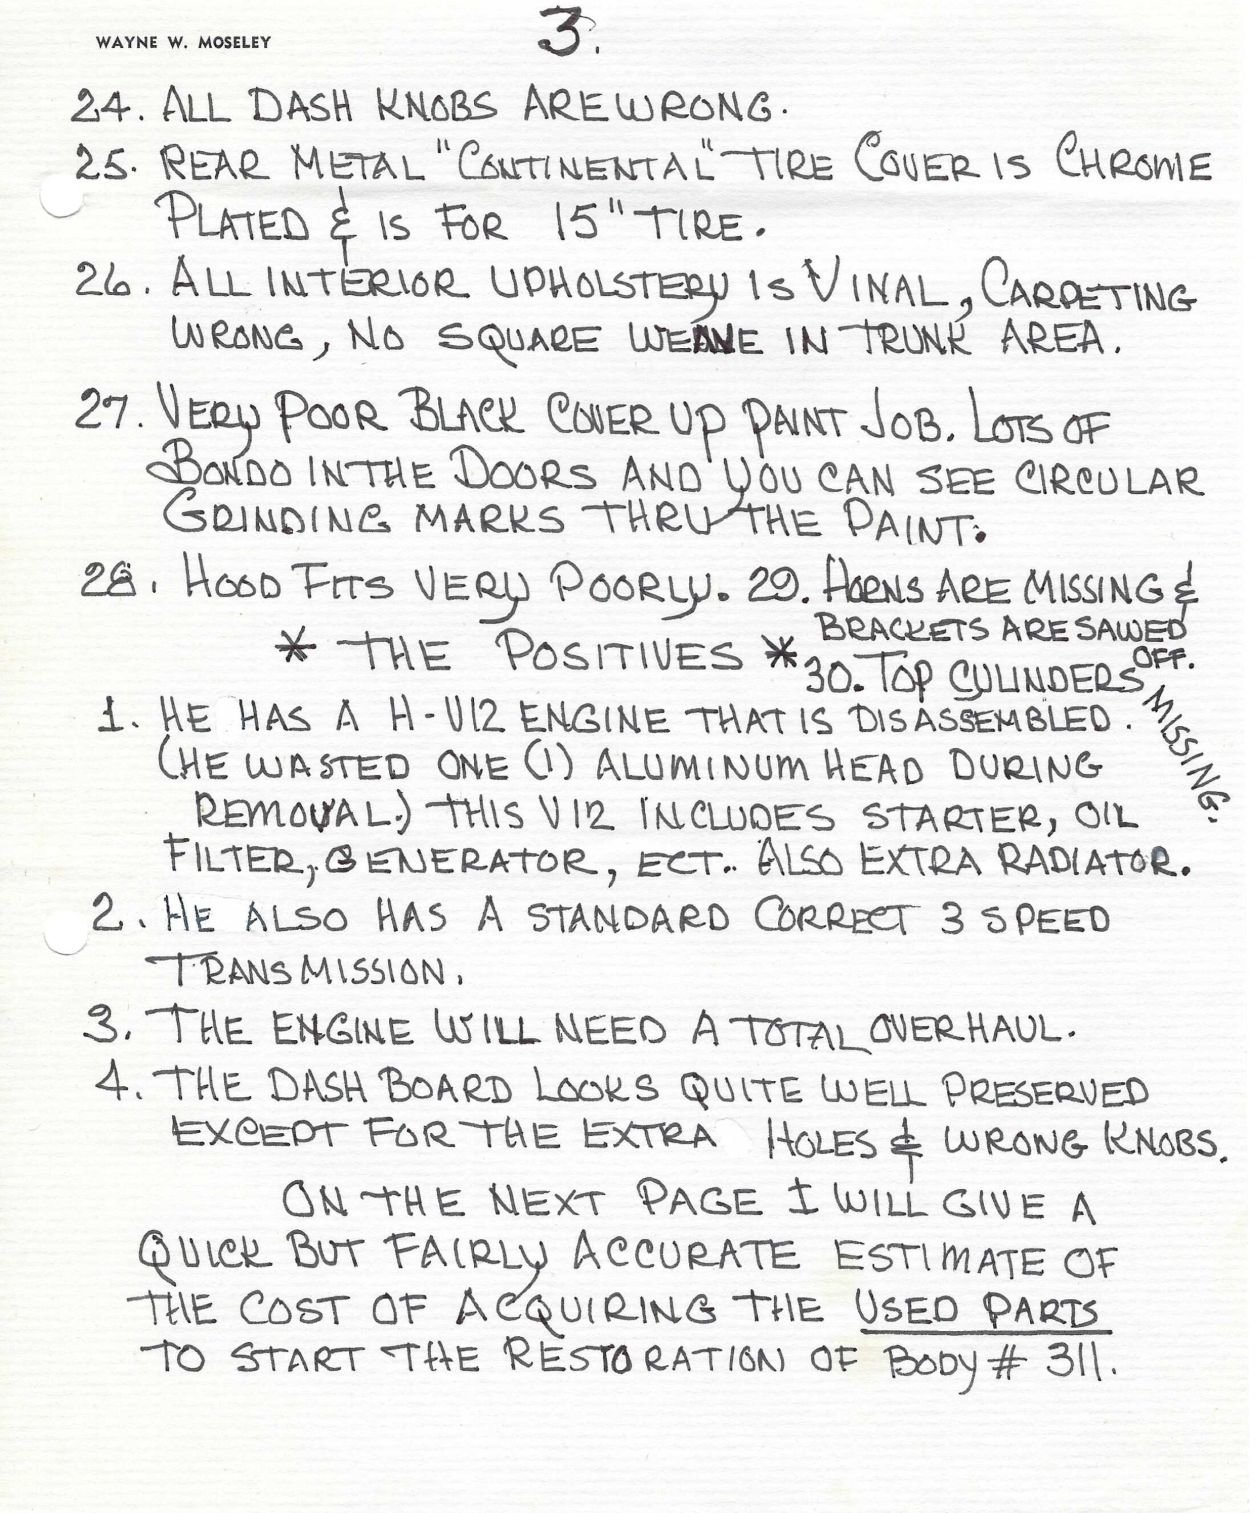 WAYNE W. MOSELEY
3.
24. ALL DASH KNOBS ARE WRONG.
25. REAR METAL "CONTINENTAL" TIRE COVER IS CHROME
PLATED & IS FOR 15" TIRE.
26. ALL INTERIOR UPHOLSTERY IS VINAL, CARPETING
WRONG, NO SQUARE WEAVE IN TRUNK AREA.
27. VERY POOR BLACK COVER UP PAINT JOB. LOTS OF
BONDO IN THE DOORS AND YOU CAN SEE CIRCULAR
GRINDING MARKS THRU THE PAINT.
28. HOOD FITS VERY POORLY. 29. HORNS ARE MISSING &
BRACKETS ARE SAWED
OFF.
* THE POSITIVES *
30. TOP CYLINDERS MISSING.
1. HE HAS A H-V12 ENGINE THAT IS DISASSEMBLED.
(HE WASTED ONE (1) ALUMINUM HEAD DURING
REMOVAL.) THIS V12 INCLUDES STARTER, OIL
FILTER, GENERATOR, ECT.. ALSO EXTRA RADIATOR.
2. HE ALSO HAS A STANDARD CORRECT 3 SPEED
TRANSMISSION.
3. THE ENGINE WILL NEED A TOTAL OVERHAUL.
4. THE DASH BOARD LOOKS QUITE WELL PRESERVED
EXCEPT FOR THE EXTRA HOLES & WRONG KNOBS.
ON THE NEXT PAGE I WILL GIVE A
QUICK BUT FAIRLY ACCURATE ESTIMATE OF
THE COST OF ACQUIRING THE USED PARTS
TO START THE RESTORATION OF BODY # 311.